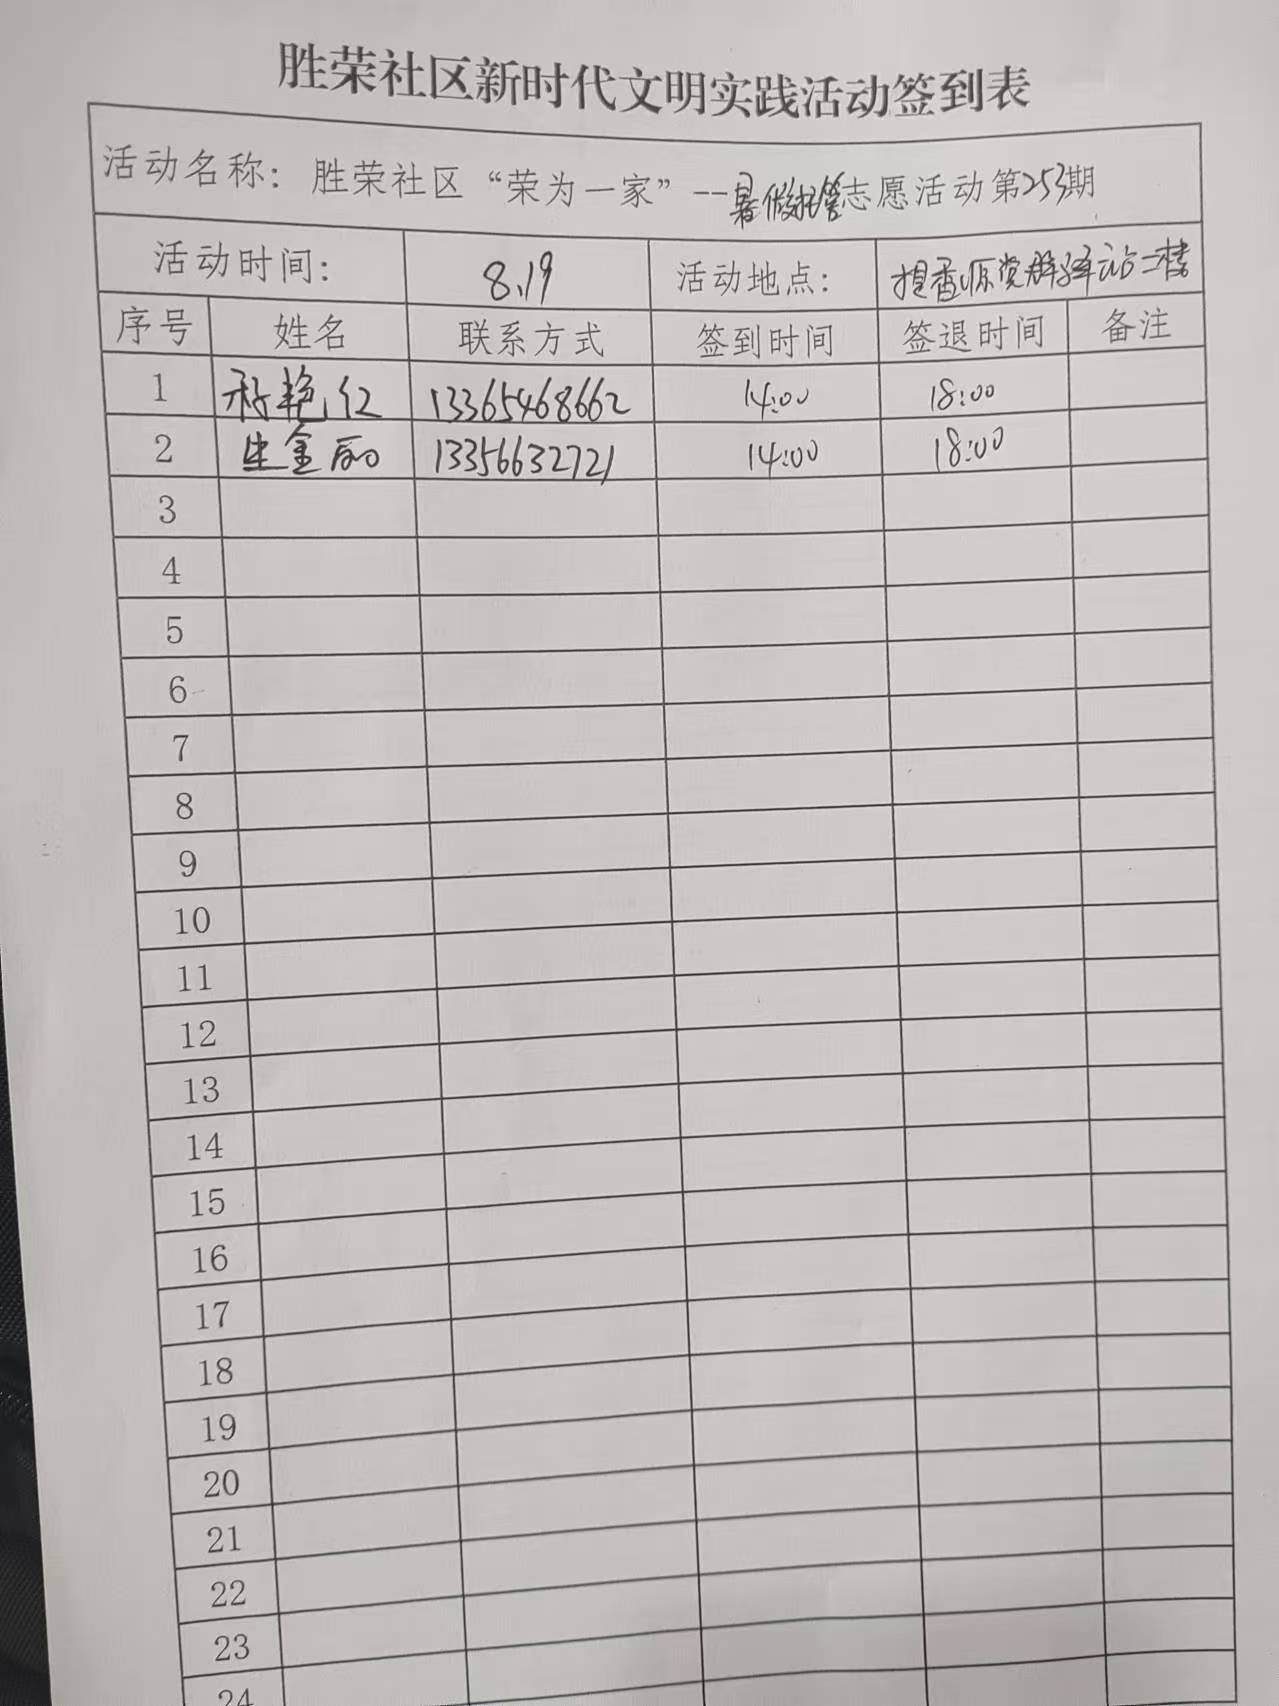 胜荣社区新时代文明实践活动签到表
活动名称：胜荣社区“荣为一家”--暑假托管志愿活动第253期
活动时间： 8.19 活动地点： 提香源党群驿站二楼
序号 姓名 联系方式 签到时间 签退时间 备注
1 艳红 13365468662 14:00 18:00
2 生金丽 13356632721 14:00 18:00
3
4
5
6
7
8
9
10
11
12
13
14
15
16
17
18
19
20
21
22
23
24